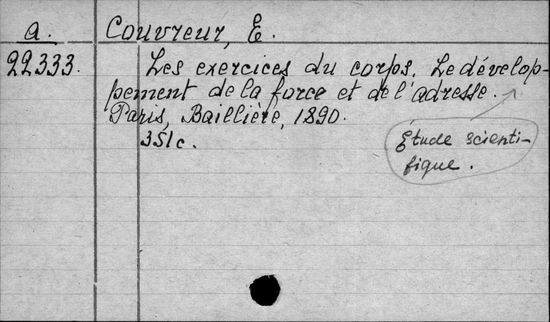 a. Couvreur, E.
22333. Les exercices du corps. Le dévelop-
pement de la force et de l'adresse.
Paris, Baillière, 1890.
351c.
Étude scienti-
fique.